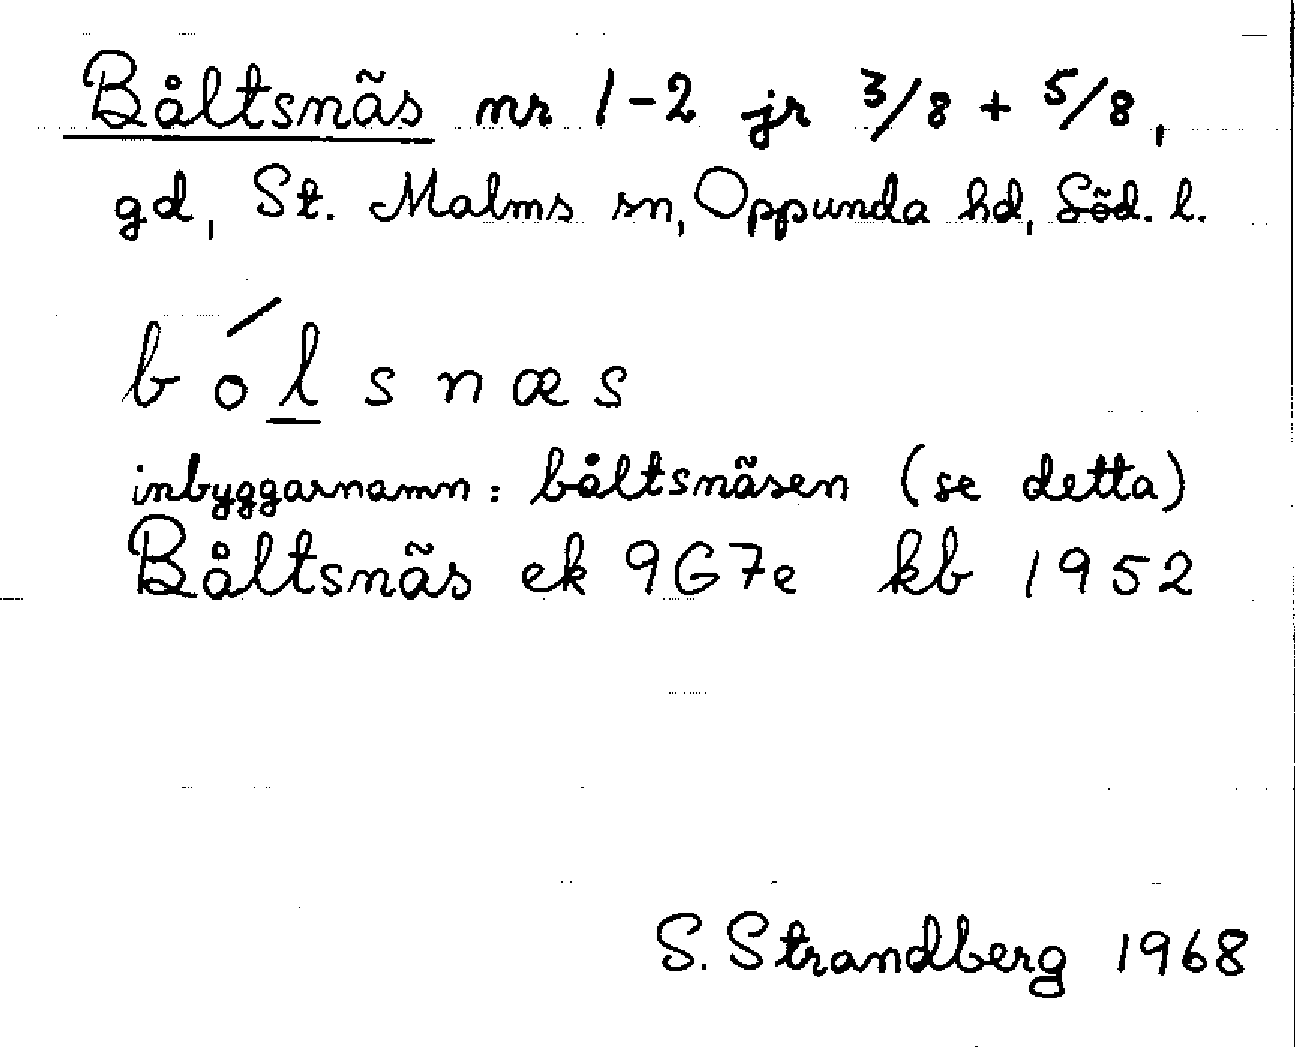 Båltsnäs nr 1-2 jr 3/8 + 5/8,
gd, St. Malms sn, Oppunda hd, Söd. l.
bólsnæs
inbyggarnamn: båltsnäsen (se detta)
Båltsnäs ek 9G7e kb 1952
S. Strandberg 1968